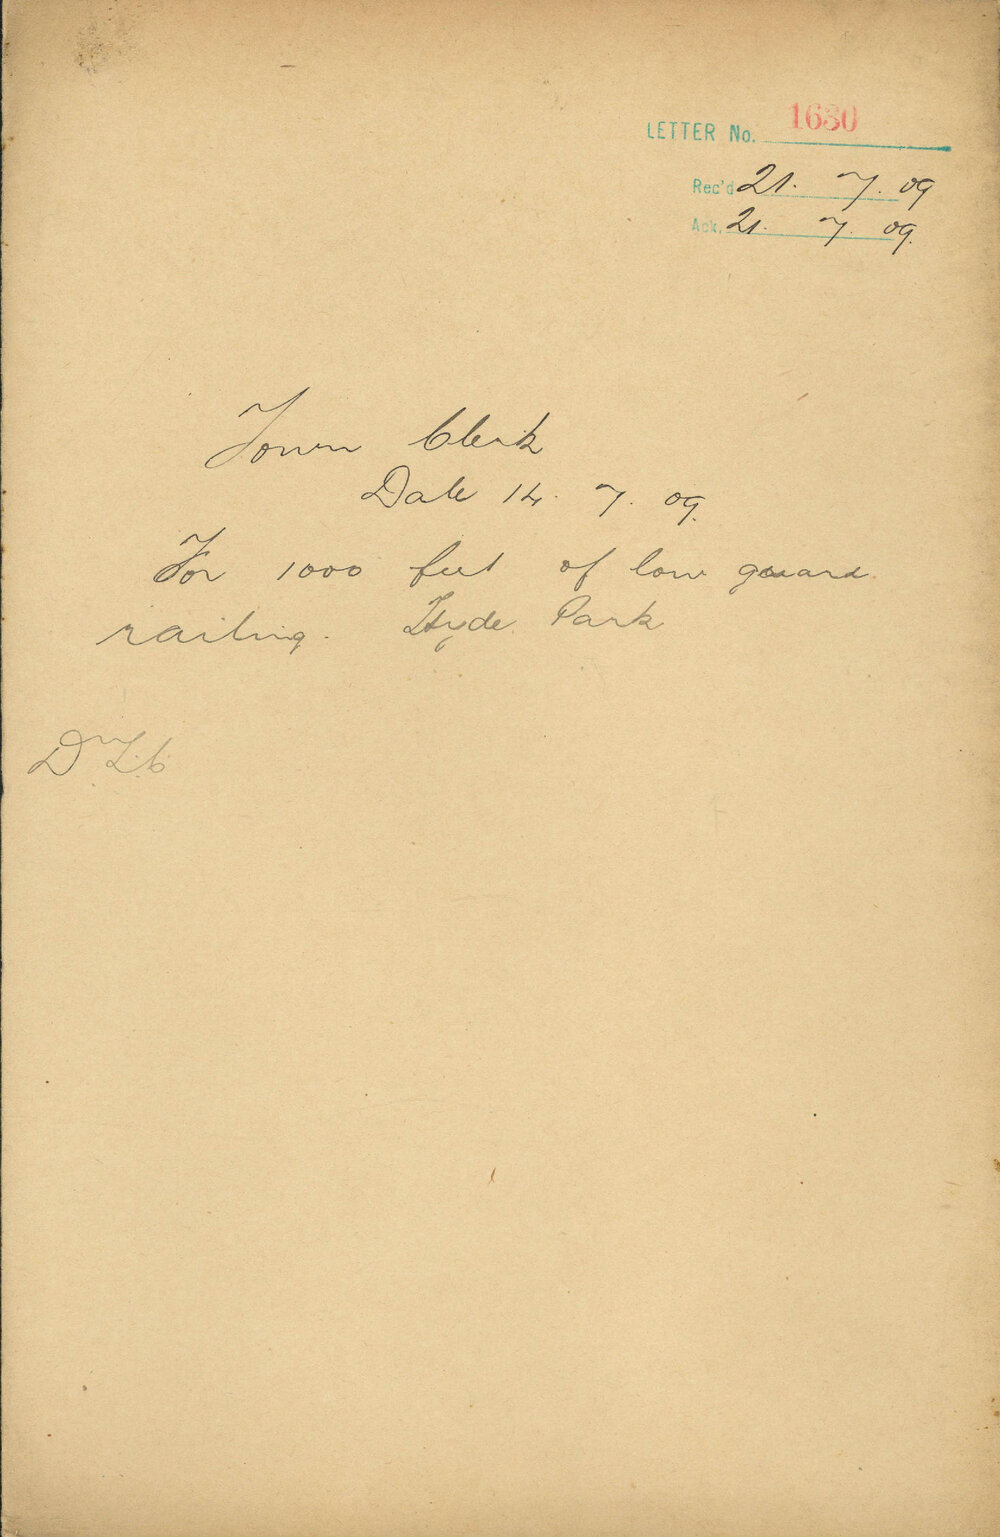 LETTER No. 1630
Rec'd 21. 7. 09
Ack. 21. 7. 09.
Town Clerk
Date 14. 7. 09.
For 1000 feet of low guard
railing. Hyde Park